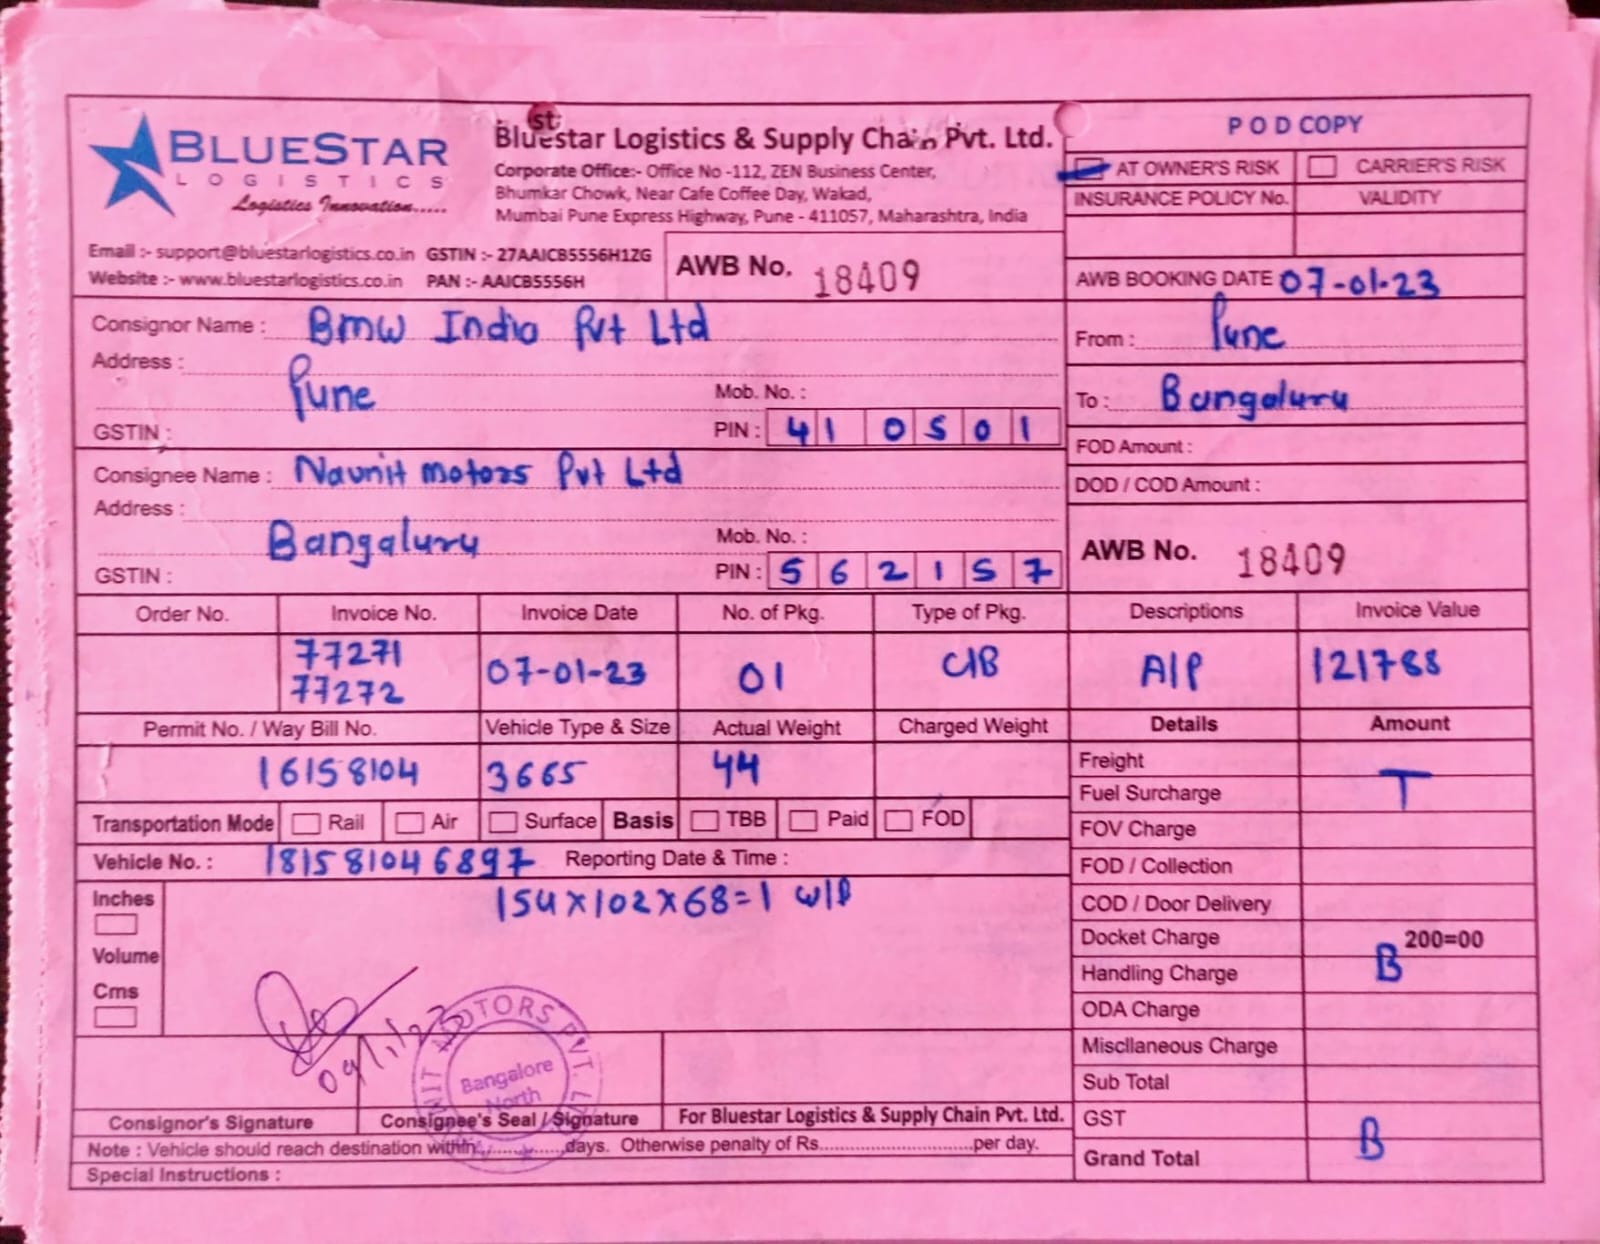 BLUESTAR
LOGISTICS
Logistics Innovation.....
st
Bluestar Logistics & Supply Chain Pvt. Ltd.
Corporate Office:- Office No -112, ZEN Business Center,
Bhumkar Chowk, Near Cafe Coffee Day, Wakad,
Mumbai Pune Express Highway, Pune - 411057, Maharashtra, India
Email :- support@bluestarlogistics.co.in GSTIN :- 27AAICB5556H1ZG
Website :- www.bluestarlogistics.co.in PAN :- AAICB5556H
AWB No. 18409
POD COPY
AT OWNER'S RISK CARRIER'S RISK
INSURANCE POLICY No. VALIDITY
AWB BOOKING DATE 07-01-23
Consignor Name : BMW India Pvt Ltd
Address :
Pune
Mob. No. :
GSTIN :
PIN : 410501
From : Pune
To : Bangaluru
FOD Amount :
DOD / COD Amount :
Consignee Name : Navnit motors Pvt Ltd
Address :
Bangaluru
Mob. No. :
GSTIN :
PIN : 562157
AWB No. 18409
Order No. Invoice No. Invoice Date No. of Pkg. Type of Pkg. Descriptions Invoice Value
77271
77272
07-01-23 01 C/B A/P 121788
Permit No. / Way Bill No. Vehicle Type & Size Actual Weight Charged Weight Details Amount
16158104 3665 44
Freight
Fuel Surcharge T
FOV Charge
FOD / Collection
COD / Door Delivery
Docket Charge 200=00
Handling Charge B
ODA Charge
Miscllaneous Charge
Sub Total
GST
Grand Total B
Transportation Mode Rail Air Surface Basis TBB Paid FOD
Vehicle No. : 181581046897 Reporting Date & Time :
Inches
Volume
Cms
154x102x68=1 w/B
09/1/23
NAVNIT MOTORS PVT. LTD.
Bangalore
North
Consignor's Signature Consignee's Seal / Signature For Bluestar Logistics & Supply Chain Pvt. Ltd.
Note : Vehicle should reach destination within..............days. Otherwise penalty of Rs............................per day.
Special Instructions :